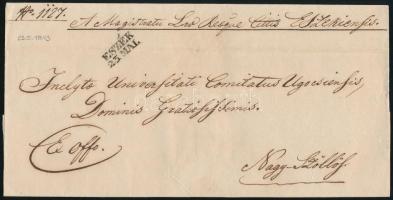 Nro. 1127. A Magistratu Lrae Regiae Cittis Eszekiensis.
ESZÉK
23. MAI.
Inclyto Universitati Comitatus Ugocsiensis,
Dominis Gratiosissimis.
Ex offo.
Nagy-Szöllős.